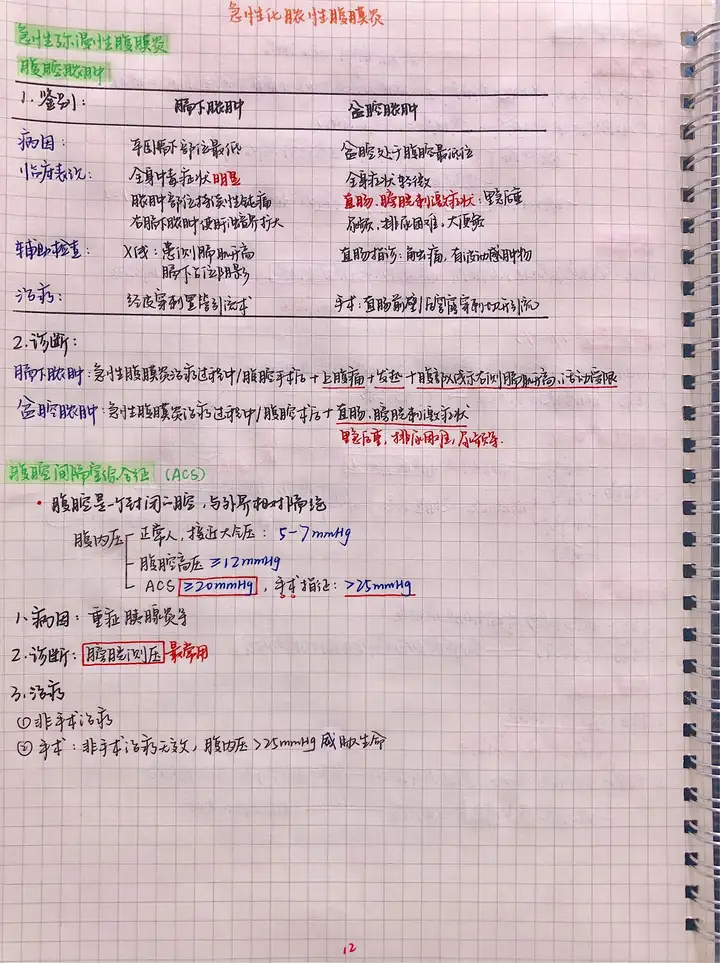 急性化脓性腹膜炎
急性弥漫性腹膜炎
腹腔脓肿
1.鉴别: 膈下脓肿 盆腔脓肿
病因: 平卧膈下部位最低 盆腔处于腹腔最低位
临床表现: 全身中毒症状明显 全身症状轻微
脓肿部位持续性钝痛 直肠、膀胱刺激症状:里急后重
右膈下脓肿使肝浊音界扩大 尿频、排尿困难、大便频
辅助检查: X线:患侧膈肌升高 直肠指诊:触痛,有波动感肿物
膈下占位阴影
治疗: 经皮穿刺置管引流术 手术:直肠前壁/后穹窿穿刺切开引流
2.诊断:
膈下脓肿:急性腹膜炎治疗过程中/腹腔手术后+上腹痛+发热+腹部X线示右侧膈肌升高、活动受限
盆腔脓肿:急性腹膜炎治疗过程中/腹腔术后+直肠、膀胱刺激症状
里急后重,排尿困难,尿频等.
腹腔间隔室综合征 (ACS)
·腹腔是一个封闭的腔,与外界相对隔绝
腹内压 正常人,接近大气压: 5-7mmHg
腹腔高压 ≥12mmHg
ACS ≥20mmHg,手术指征: >25mmHg
1.病因: 重症胰腺炎等
2.诊断: 膀胱测压-最常用
3.治疗
①非手术治疗
②手术:非手术治疗无效,腹内压>25mmHg威胁生命
12